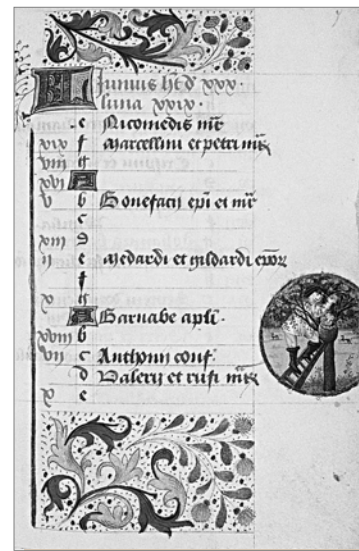 KL Junius ht d xxx.
luna xxix.
e Nicomedis mr
xix f Marcellini et petri mr
viii g
xvi A
v b Bonefacij epi et mr
c
xiii d
ii e Medardi et gildardi epor
f
x g
A Barnabe apli.
xviii b
vii c Anthonii conf
d Valerij et rufi mr
e